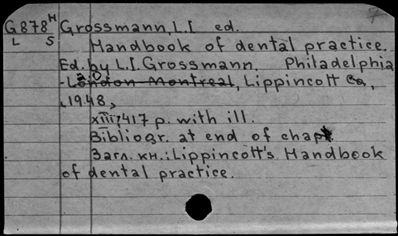 G878H Grossmann, L.I. ed.
L S Handbook of dental practice.
Ed. by L.I. Grossmann. Philadelphia
London Montreal, Lippincott Co,
1948,
XIII, 417 p. with ill.
Bibliogr. at end of chapt
Загл. кн.: Lippincott's Handbook
of dental practice.